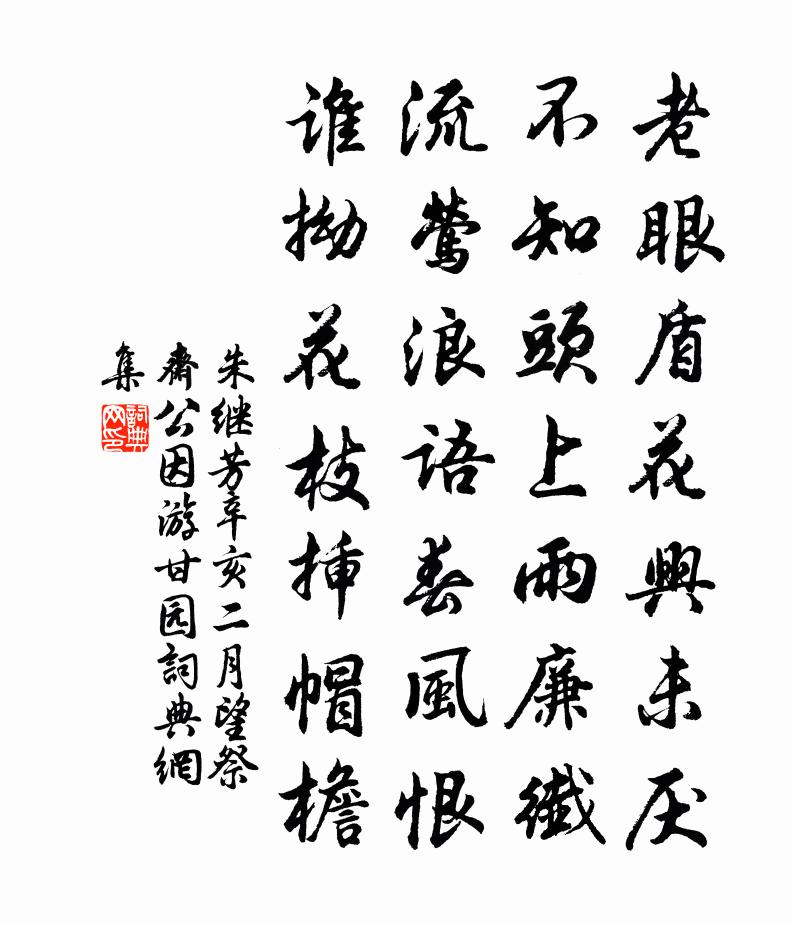 老眼盾花興未厌
不知頭上雨廉纖
流鶯浪語春風恨
誰拗花枝挿帽檐
朱继芳辛亥二月望祭
齋公因游甘园詞典網
集
詞典网印